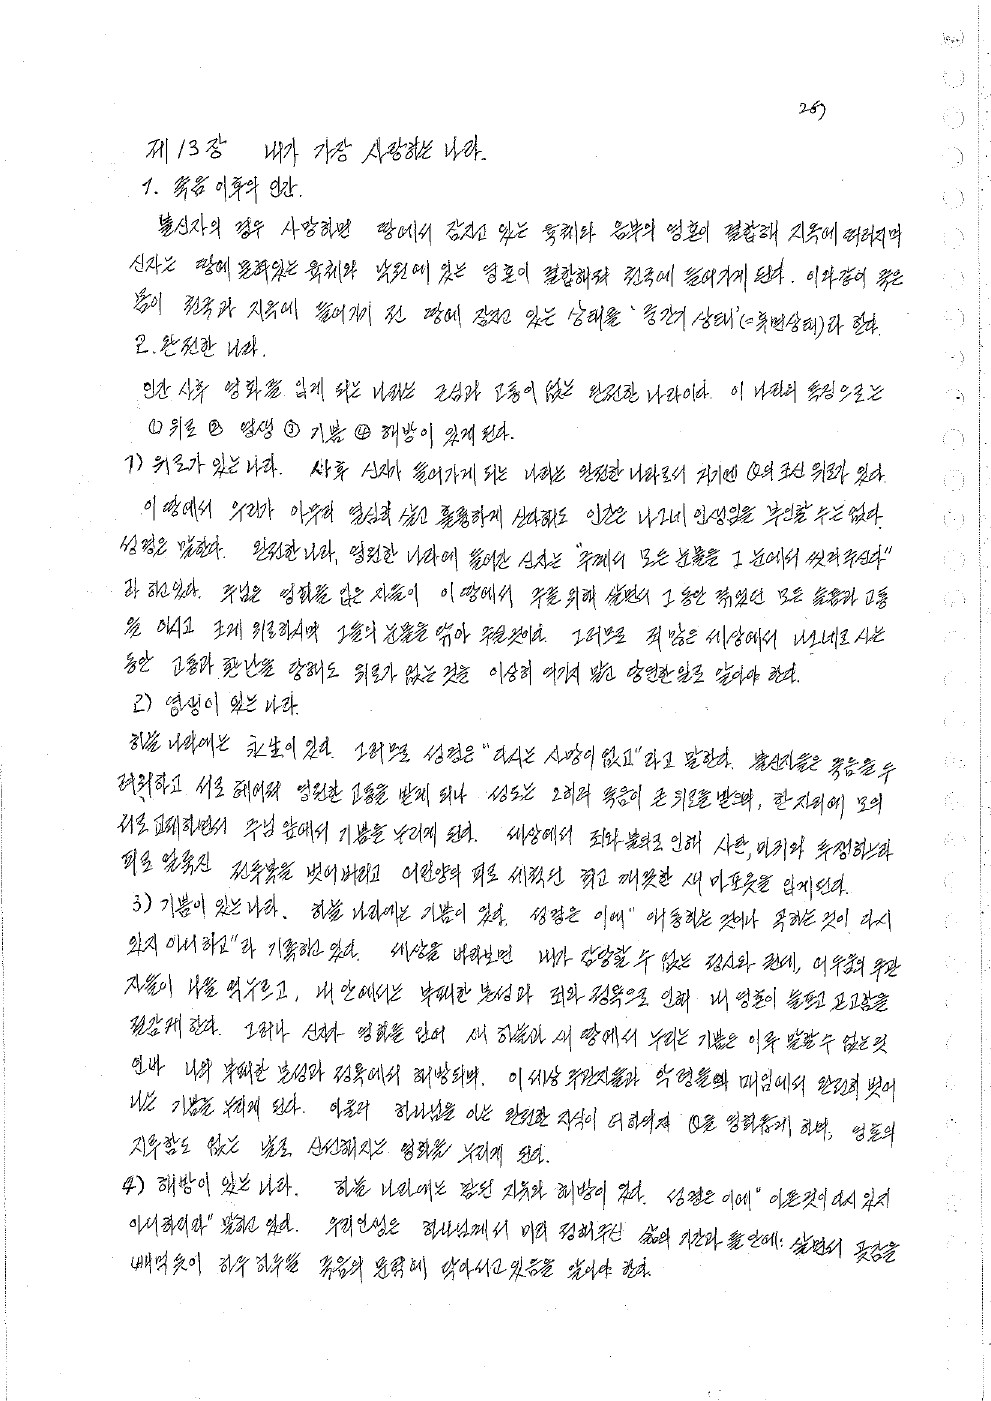 267
제13장 내가 가장 사랑하는 나라.
1. 죽음 이후의 인간.
불신자의 경우 사망하면 땅에서 잠자고 있는 육체와 음부의 영혼이 결합해 지옥에 떨어지며
신자는 땅에 묻혀있는 육체와 낙원에 있는 영혼이 결합해 천국에 들어가게 된다. 이와같이 죽은
몸이 천국과 지옥에 들어가기 전 땅에 잠자고 있는 상태를 '중간기 상태'(=수면상태)라 한다.
2. 완전한 나라.
인간 사후 영화를 입게 되는 나라는 근심과 고통이 없는 완전한 나라이다. 이 나라의 특징으로는
① 위로 ② 영생 ③ 기쁨 ④ 해방이 있게 된다.
1) 위로가 있는 나라. 사후 신자가 들어가게 되는 나라는 완전한 나라로서 거기엔 의 위로가 있다.
이 땅에서 우리가 아무리 열심히 살고 훌륭하게 산다해도 인간은 나그네 인생임을 부인할 수는 없다.
성경은 말한다. 완전한 나라, 영원한 나라에 들어간 신자는 "주께서 모든 눈물을 그 눈에서 씻겨주신다"
라 하고 있다. 주님은 영화를 입은 자들이 이 땅에서 주를 위해 살면서 그동안 겪었던 모든 슬픔과 고통
을 아시고 크게 위로하시며 그들의 눈물을 닦아 주실것이다. 그러므로 죄 많은 세상에서 나그네로 사는
동안 고통과 환난을 당해도 위로가 없는 것을 이상히 여기지 말고 당연한 일로 알아야 한다.
2) 영생이 있는 나라.
하늘 나라에는 永生이 있다. 그러므로 성경은 "다시는 사망이 없고"라고 말한다. 불신자들은 죽음을 두
려워하고 서로 헤어져 영원한 고통을 받게 되나 성도는 오히려 죽음이 큰 위로을 받으며, 한 자리에 모여
서로 교제하면서 주님 앞에서 기쁨을 누리게 된다. 세상에서 죄와 불의로 인해 사탄, 마귀와 투쟁하느라
피로 얼룩진 전투복을 벗어버리고 어린양의 피로 세척된 희고 깨끗한 새 마포옷을 입게된다.
3) 기쁨이 있는 나라. 하늘 나라에는 기쁨이 있다. 성경은 이에 "애통하는 것이나 곡하는 것이 다시
있지 아니하고"라 기록하고 있다. 세상을 바라보면 내가 감당할 수 없는 정사와 권세, 어두움의 주관
자들이 나를 억누르고, 내 안에서는 부패한 본성과 죄와 정욕으로 인해 내 영혼이 슬프고 곤고함을
절감케 한다. 그러나 신자가 영화를 입어 새 하늘과 새 땅에서 누리는 기쁨은 이루 말할 수 없는 것
인바 나의 부패한 본성과 정욕에서 해방되며, 이 세상 주관자들과 악령들의 매임에서 완전히 벗어
나는 기쁨을 누리게 된다. 아울러 하나님을 아는 완전한 지식이 더하여져 을 영화롭게 하며, 영혼의
지루함도 없는 날로 신선해지는 영화를 누리게 된다.
4) 해방이 있는 나라. 하늘 나라에는 참된 자유와 해방이 있다. 성경은 이에 "이른것이 다시 있지
아니하리라" 말하고 있다. 우리인생은 하나님께서 미리 정해주신 삶의 기간과 틀 안에서 살면서 곶감을
빼먹듯이 하루 하루를 죽음의 문턱에 닥아서고 있음을 알아야 한다.